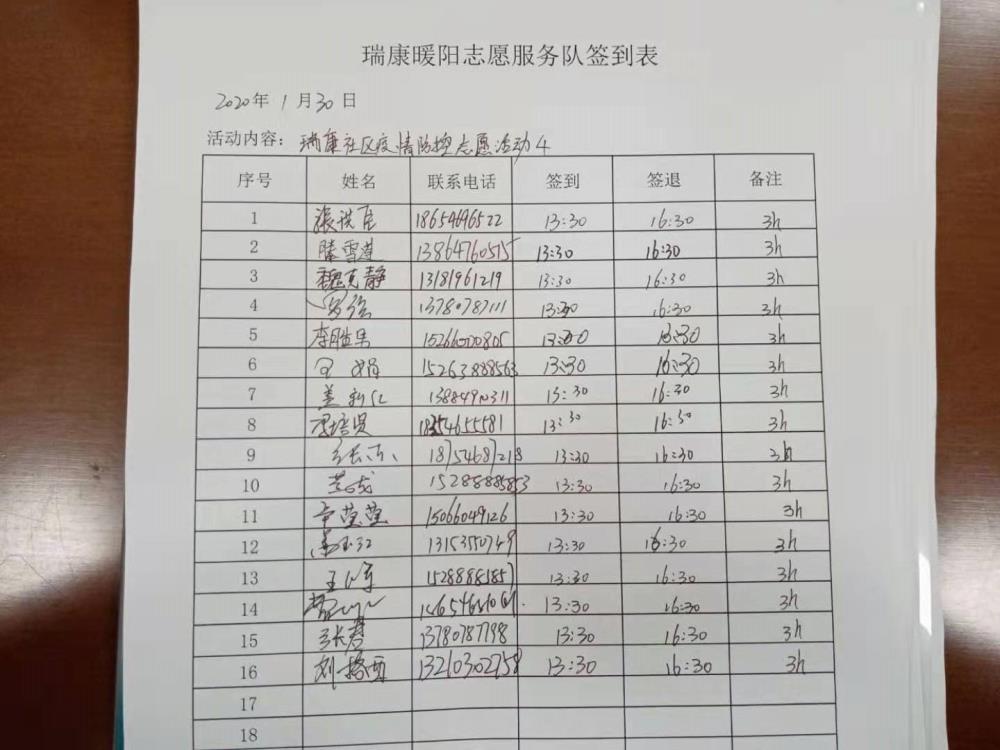 瑞康暖阳志愿服务队签到表
2020年 1月30日
活动内容: 瑞康社区疫情防控志愿活动4
序号 姓名 联系电话 签到 签退 备注
1 18654696522 13:30 16:30 3h
2 滕雪莲 13864760515 13:30 16:30 3h
3 魏克静 13181961219 13:30 16:30 3h
4 13780787111 13:30 16:30 3h
5 李胜果 13:30 16:30 3h
6 15263888563 13:30 16:30 3h
7 姜新仁 13:30 16:30 3h
8 18354655581 13:30 16:30 3h
9 18754687218 13:30 16:30 3h
10 15288885853 13:30 16:30 3h
11 15066049126 13:30 16:30 3h
12 13153550749 13:30 16:30 3h
13 13:30 16:30 3h
14 13:30 16:30 3h
15 13780787798 13:30 16:30 3h
16 13210302758 13:30 16:30 3h
17
18